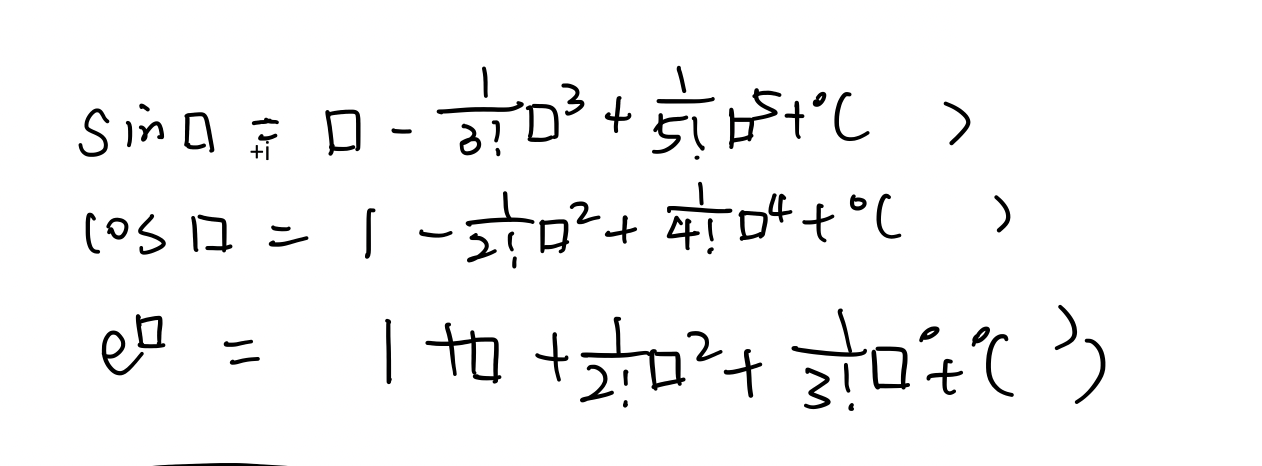 sin□ = □ - 1/3! □³ + 1/5! □⁵ + °( )
+i
cos□ = 1 - 1/2! □² + 1/4! □⁴ + °( )
e^□ = 1 + □ + 1/2! □² + 1/3! □° + °( ))